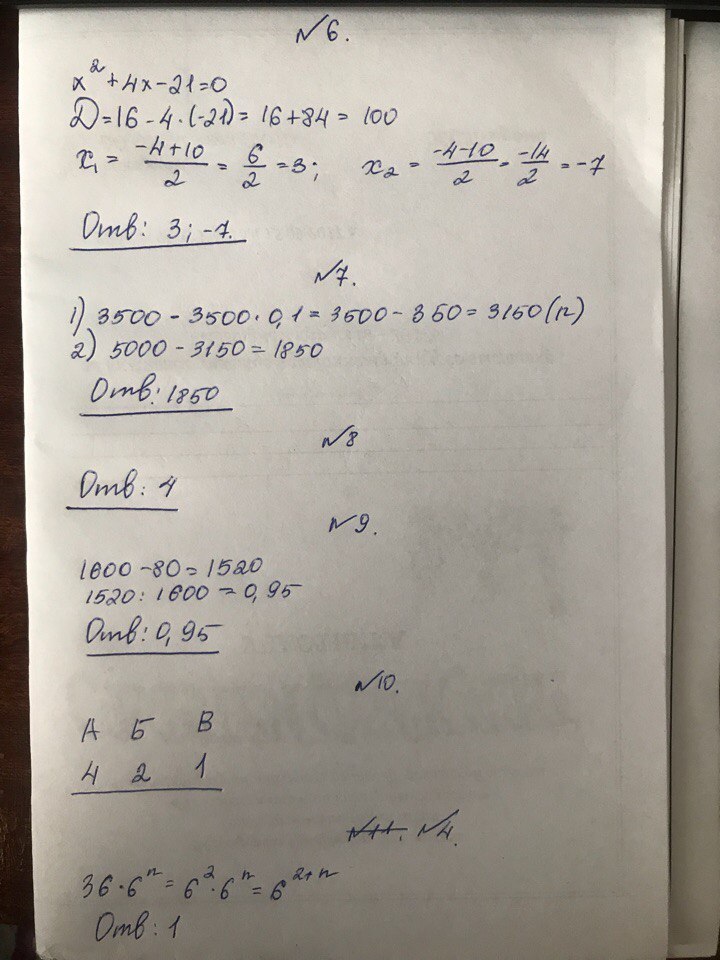 №6.
x² + 4x - 21 = 0
D = 16 - 4 · (-21) = 16 + 84 = 100
x₁ = (-4+10)/2 = 6/2 = 3; x₂ = (-4-10)/2 = -14/2 = -7
Отв: 3; -7.
№7.
1) 3500 - 3500 · 0,1 = 3500 - 350 = 3150 (п)
2) 5000 - 3150 = 1850
Отв: 1850
№8
Отв: 4
№9.
1600 - 80 = 1520
1520 : 1600 = 0,95
Отв: 0,95
№10.
А Б В
4 2 1
№11. №4.
36 · 6ⁿ = 6² · 6ⁿ = 6²⁺ⁿ
Отв: 1